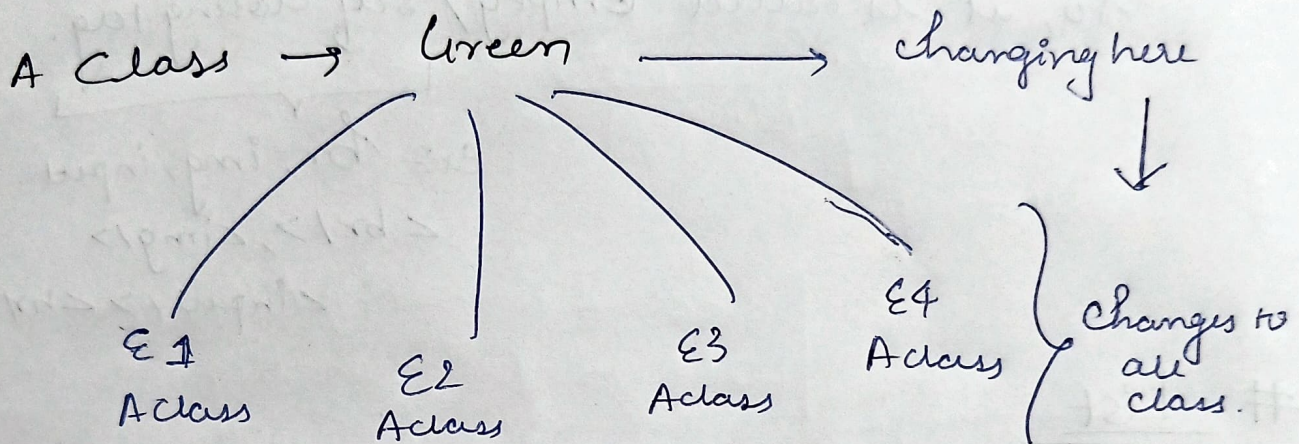 A Class → Green → Changing here
↓
E1
A class
E2
A class
E3
A class
E4
A class
Changes to
all
class.